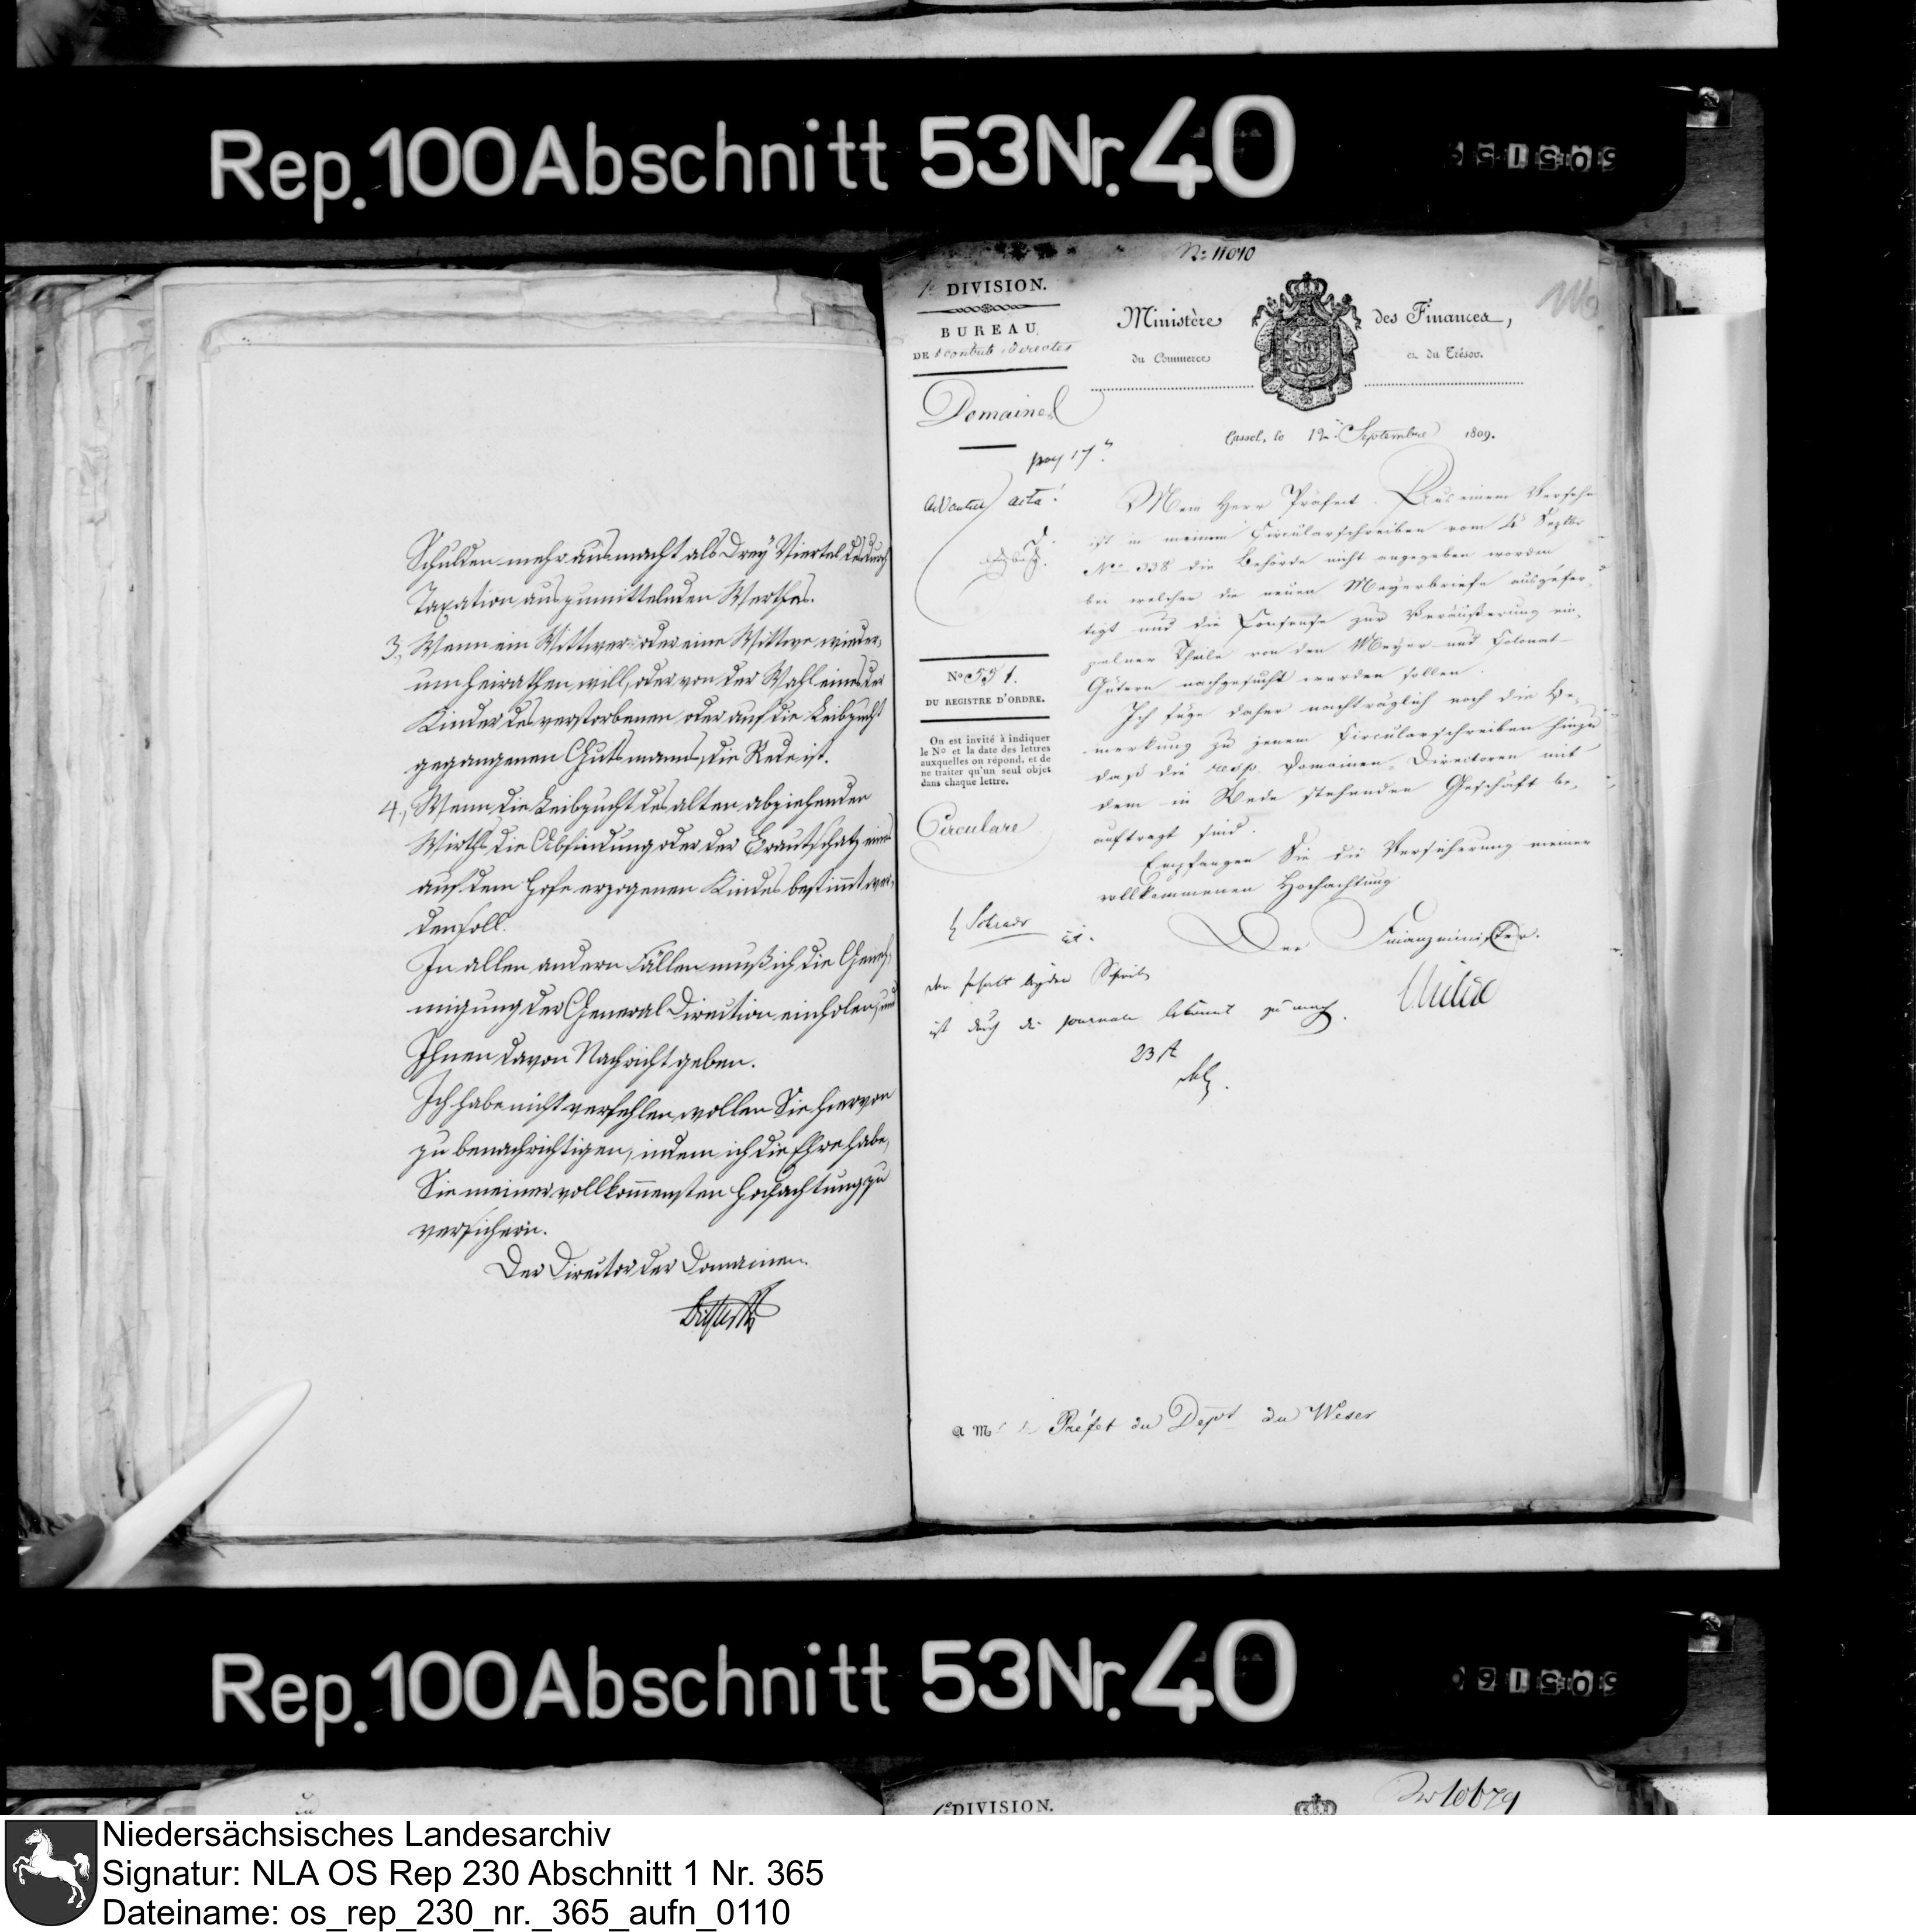 Rep. 100 Abschnitt 53 Nr. 40
Schulden mehr ausmacht als drey Viertel des durch
Taxation auszumittelnden Werthes.
3., Wenn ein Wittwer oder eine Wittwe wieder-
um heirathen will, oder von der Wahl eines der
Kinder des verstorbenen oder auf die Leibzucht
gegangenen Gutsmanns, die Rede ist.
4., Wenn die Leibzucht des alten abziehenden
Wirths, die Abfindung oder der Brautschatz eines
auf dem Hofe erzogenen Kindes bestimmt wer-
den soll.
In allen andern Fällen muß ich die Geneh-
migung der General Direction einholen, und
Ihnen davon Nachricht geben.
Ich habe nicht verfehlen wollen Sie hiervon
zu benachrichtigen, indem ich die Ehre habe,
Sie meiner vollkommensten Hochachtung zu
versichern.
Der Director der Domainen.
No 11010
1e DIVISION.
BUREAU
DE s contrib. directes
Domaines
Ministère des Finances,
du Commerce et du Trésor.
Cassel, le 12 Septembre 1809.
acta.
Mein Herr Präfect. Aus einem Versehn
ist in meinem Circularschreiben vom 4 Septbr
No 338 die Behörde nicht angegeben worden
bei welcher die neuen Meyerbriefe ausgefer-
tigt und die Consense zur Veräußerung ein-
zelner Theile von den Meyer- und Colonat-
Gütern nachgesucht werden sollen.
Ich füge daher nachträglich noch die Be-
merkung zu jenem Circularschreiben hinzu
daß die resp. Domainen-Directoren mit
dem in Rede stehenden Geschäft be-
auftragt sind.
Empfangen Sie die Versicherung meiner
vollkommenen Hochachtung
Der Finanzminister.
No 551.
DU REGISTRE D'ORDRE.
On est invité à indiquer
le No et la date des lettres
auxquelles on répond, et de
ne traiter qu'un seul objet
dans chaque lettre.
Circulare
ist durch die Journale bekannt zu mach.
a Mr le Préfet du Dept du Weser
Rep. 100 Abschnitt 53 Nr. 40
1e DIVISION.
Niedersächsisches Landesarchiv
Signatur: NLA OS Rep 230 Abschnitt 1 Nr. 365
Dateiname: os_rep_230_nr._365_aufn_0110